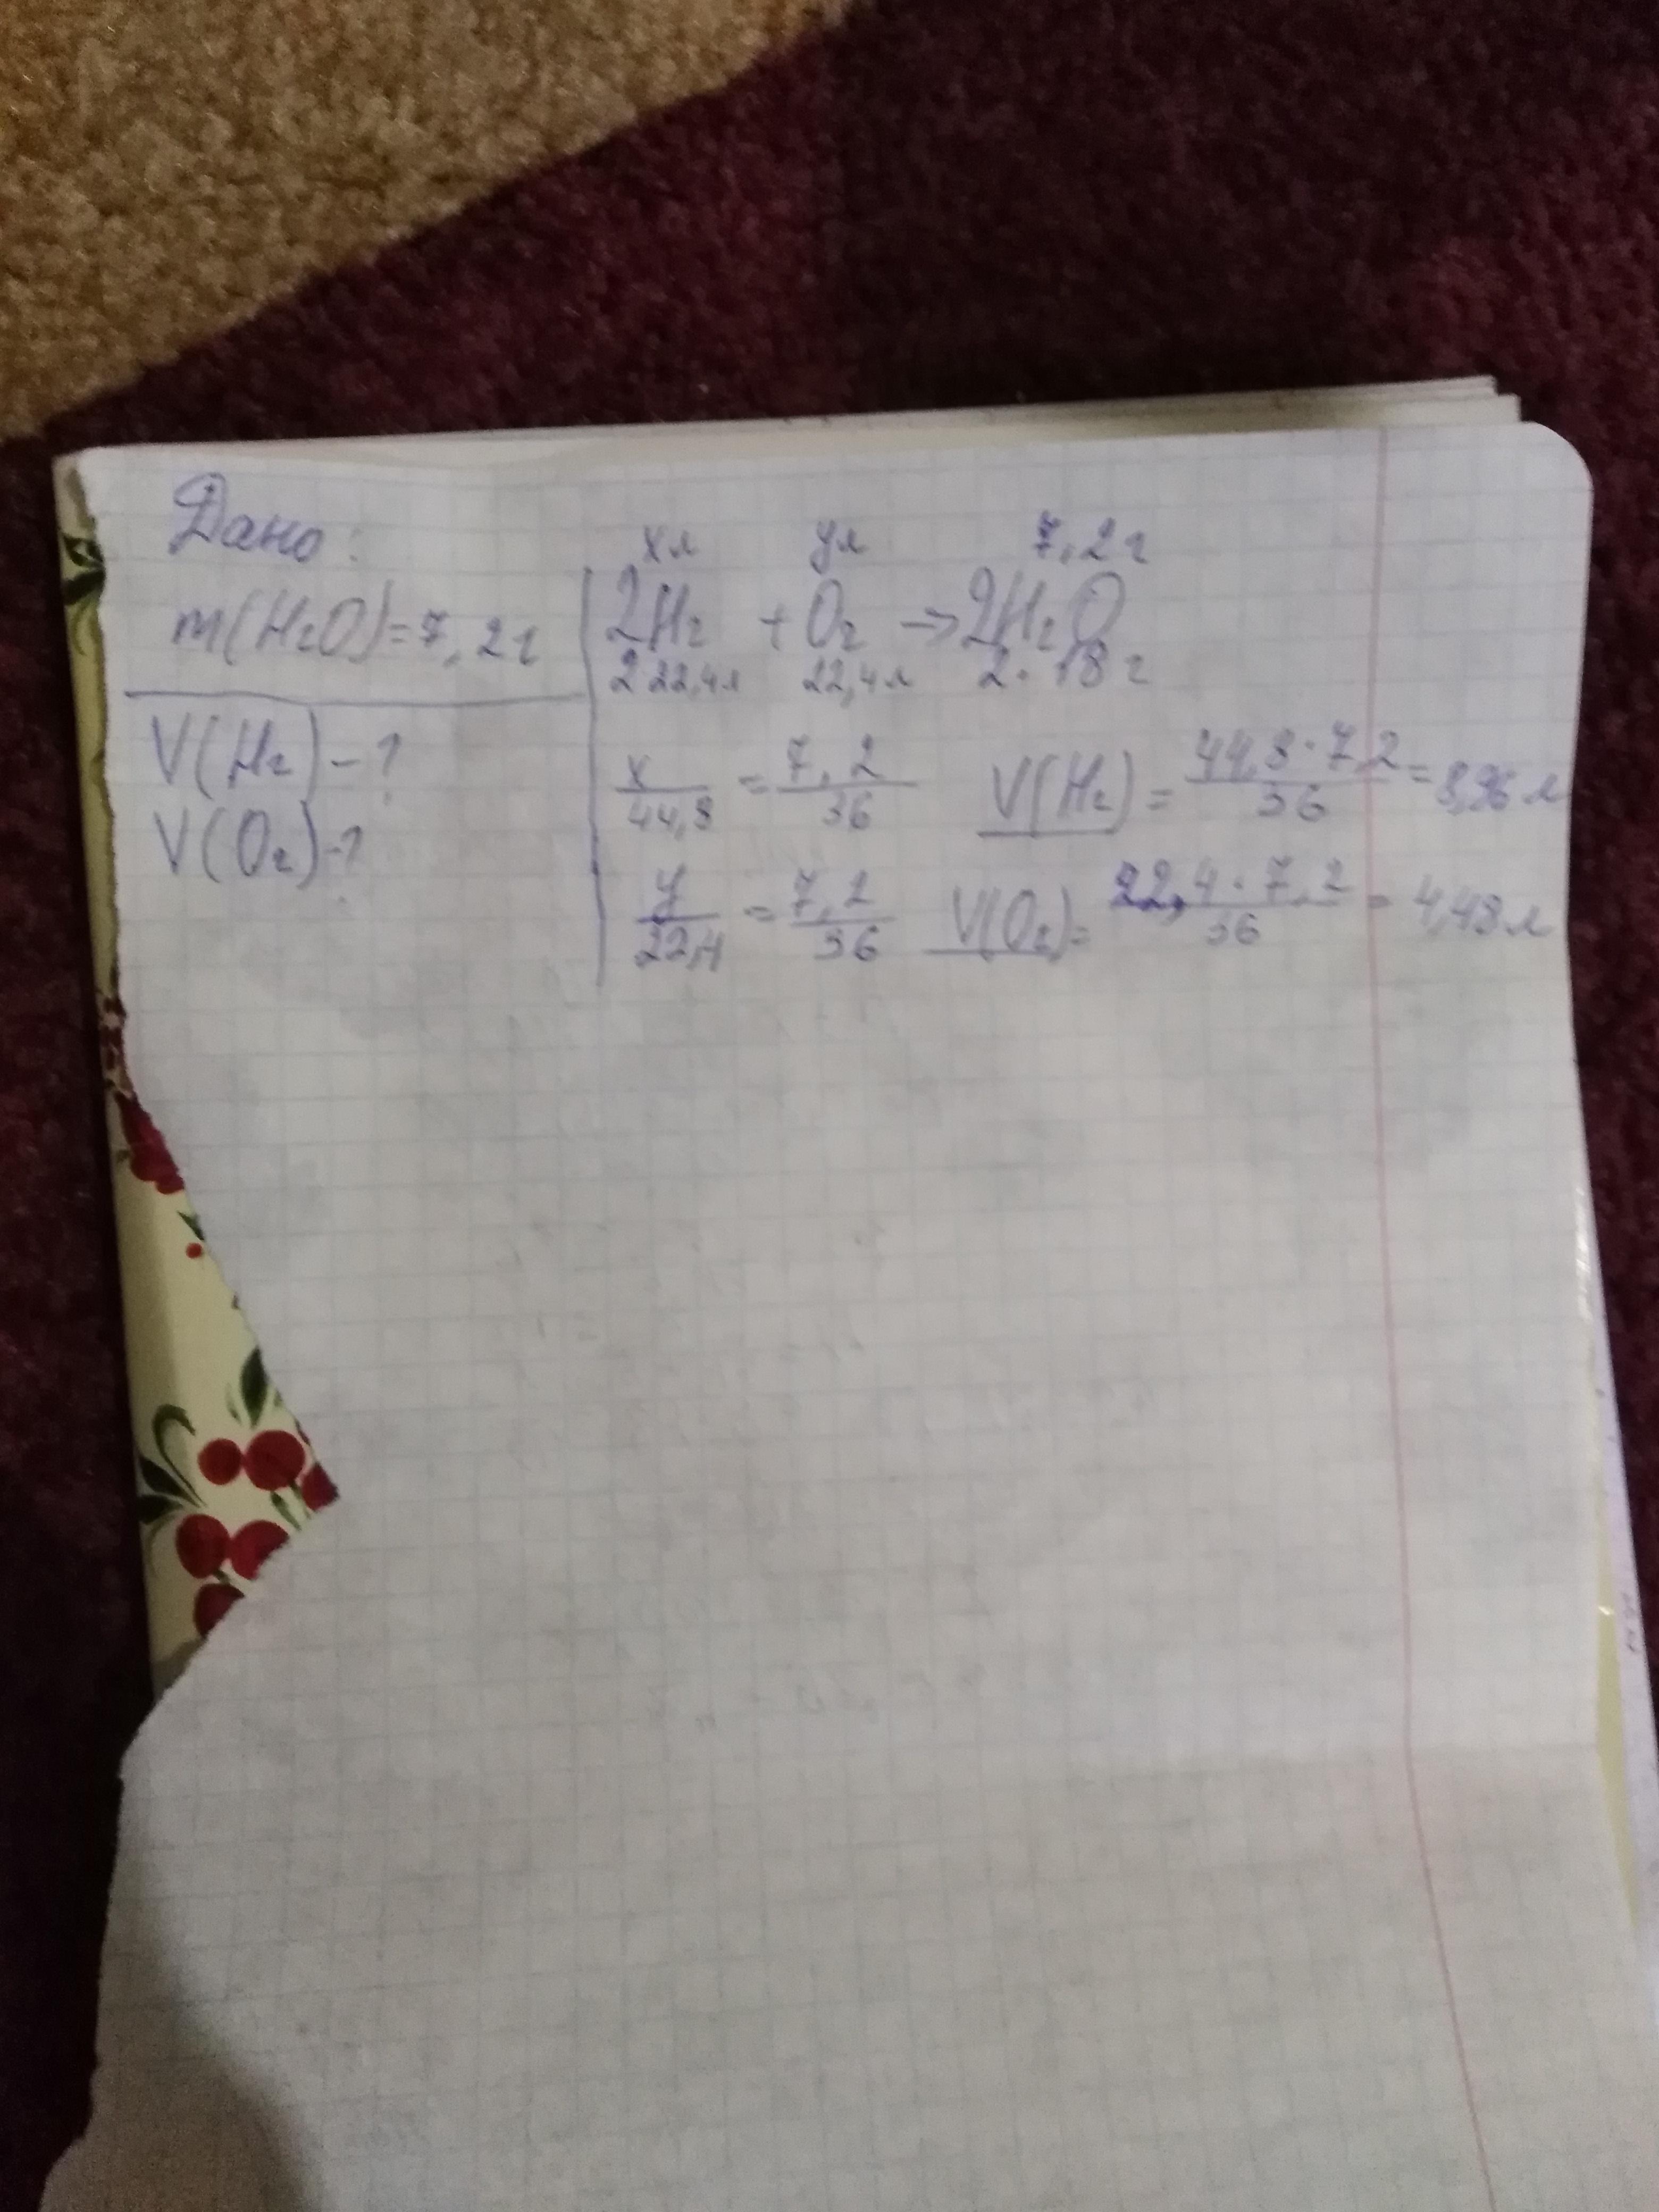 Дано:
m(H₂O)=7,2г
V(H₂)-?
V(O₂)-?
xл yл 7,2г
2H₂ + O₂ → 2H₂O
2·22,4л 22,4л 2·18г
x/44,8 = 7,2/36 V(H₂) = 44,8·7,2/36 = 8,96 л
y/22,4 = 7,2/36 V(O₂) = 22,4·7,2/36 = 4,48 л